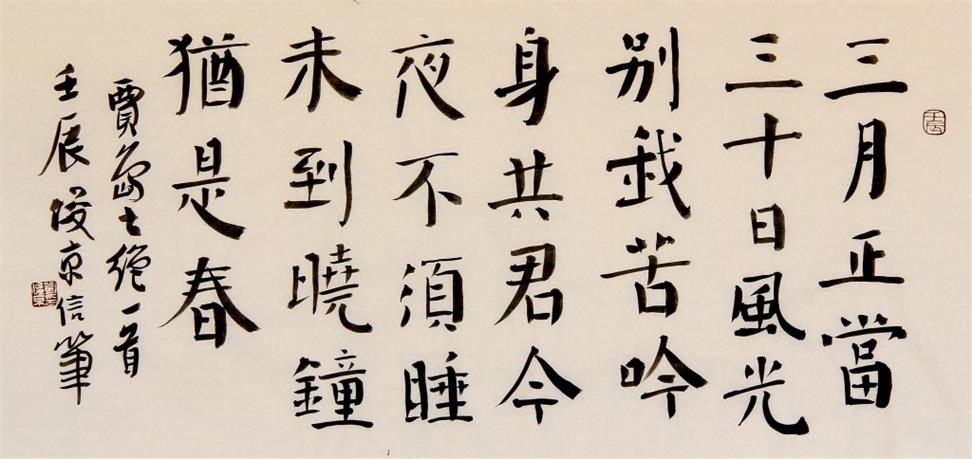 三月正當
三十日風光
別我苦吟
身共君今
夜不須睡
未到曉鐘
猶是春
賈島七絕一首
壬辰俊京信筆